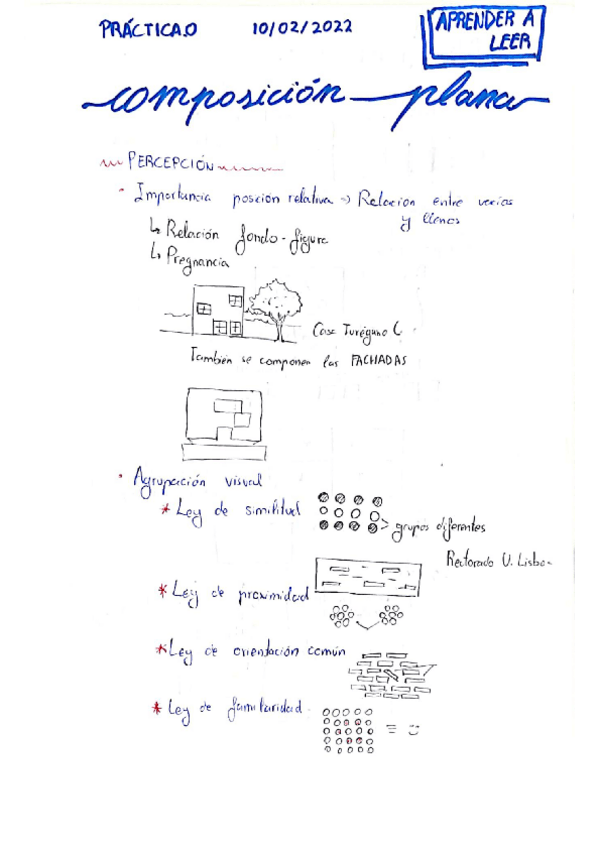 PRÁCTICA.0 10/02/2022 APRENDER A
LEER
composición plana
PERCEPCIÓN
Importancia posción relativa → Relación entre vacíos
y llenos
↳ Relación fondo-figura
↳ Pregnancia
Casa Turégano C.
También se componen las FACHADAS
Agrupación visual
* Ley de similitud
> grupos diferentes
Rectorado U. Lisboa
* Ley de proximidad
* Ley de orientación común
* Ley de familiaridad